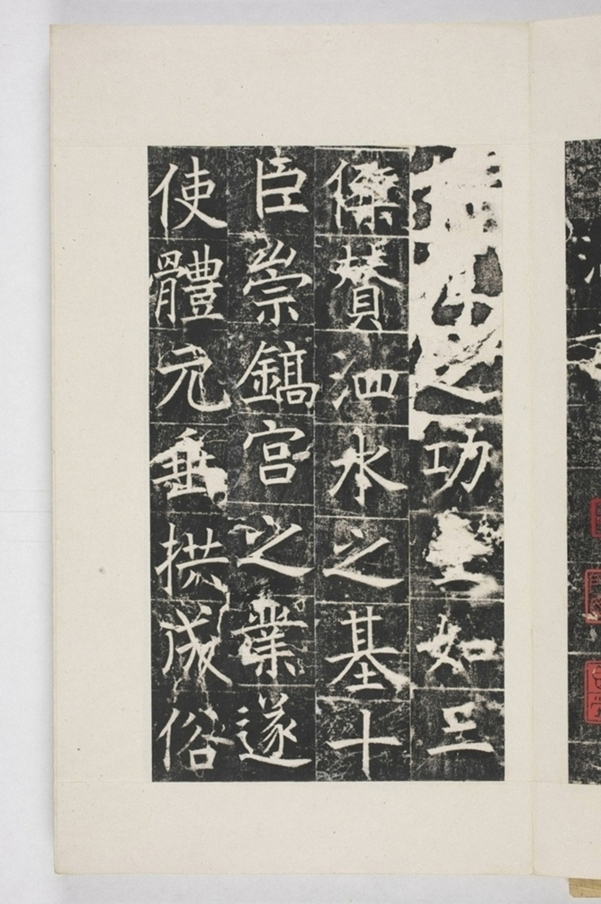 之功豈如三
傑贊泗水之基十
臣崇鎬宮之業遂
使體元垂拱成俗